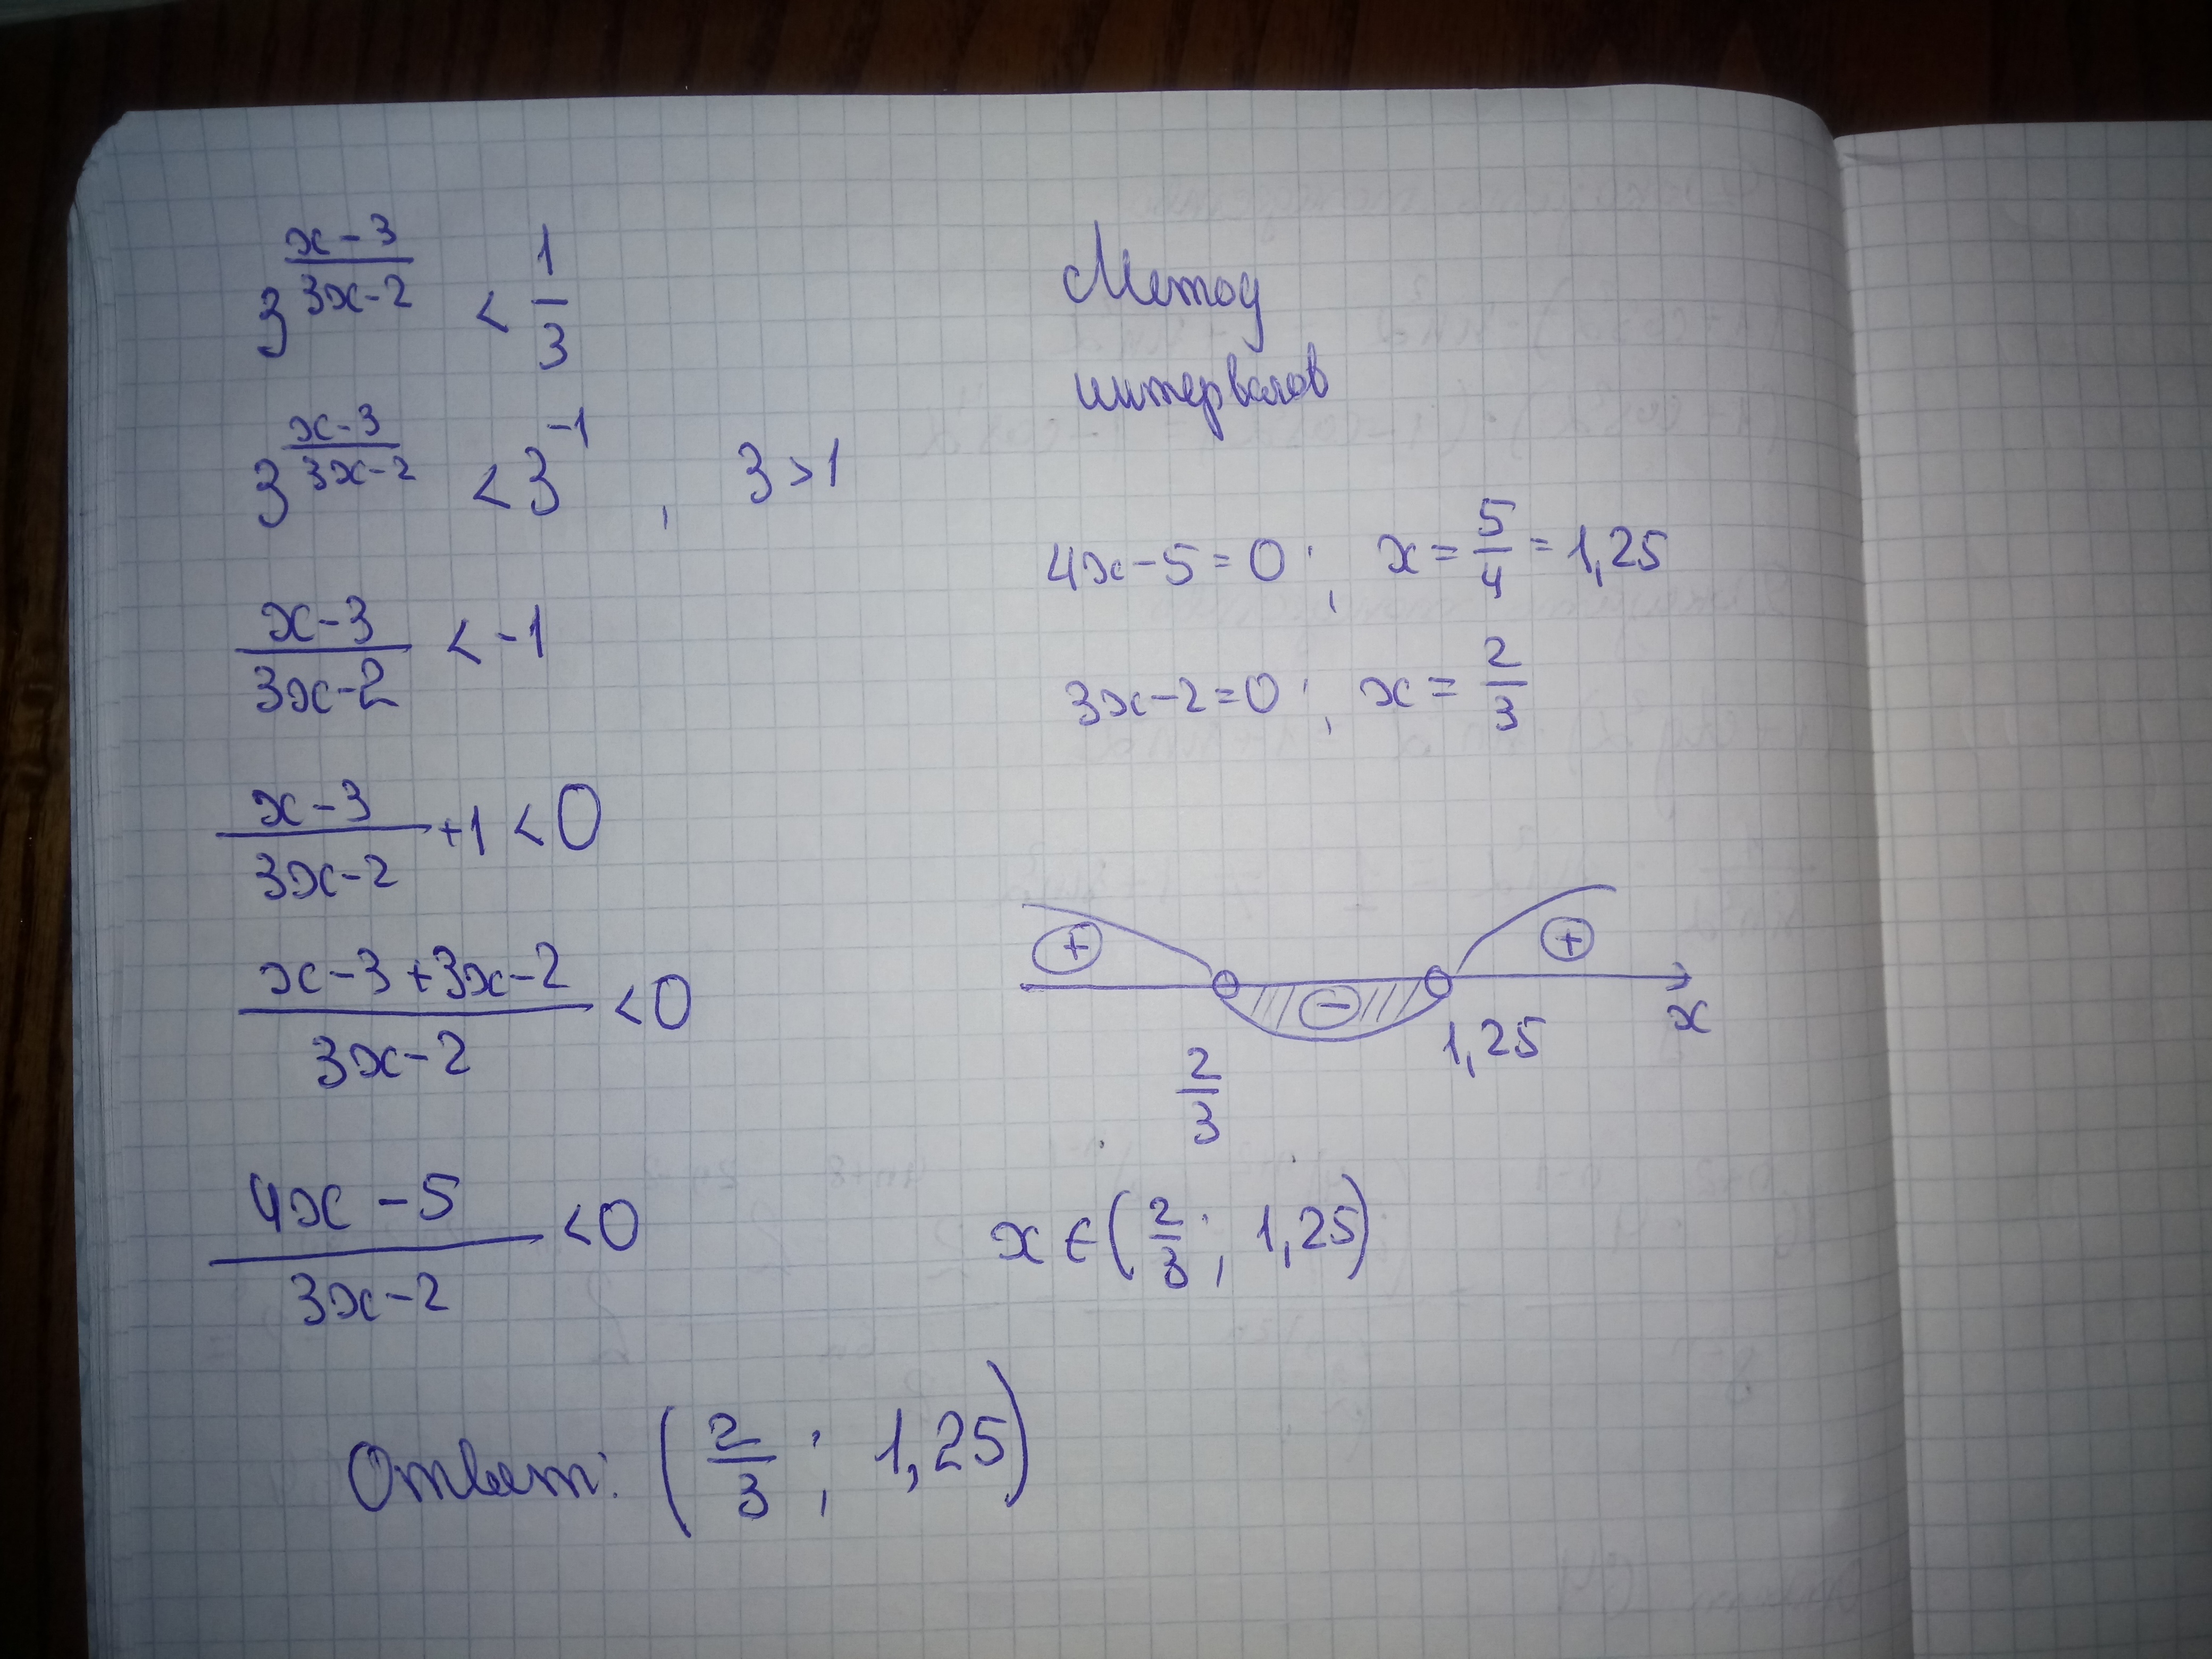 3^((x-3)/(3x-2)) < 1/3
3^((x-3)/(3x-2)) < 3^(-1), 3>1
(x-3)/(3x-2) < -1
(x-3)/(3x-2) +1 < 0
(x-3+3x-2)/(3x-2) < 0
(4x-5)/(3x-2) < 0
Метод
интервалов
4x-5=0; x=5/4=1,25
3x-2=0; x=2/3
+ - +
2/3 1,25 x
x∈(2/3; 1,25)
Ответ: (2/3; 1,25)